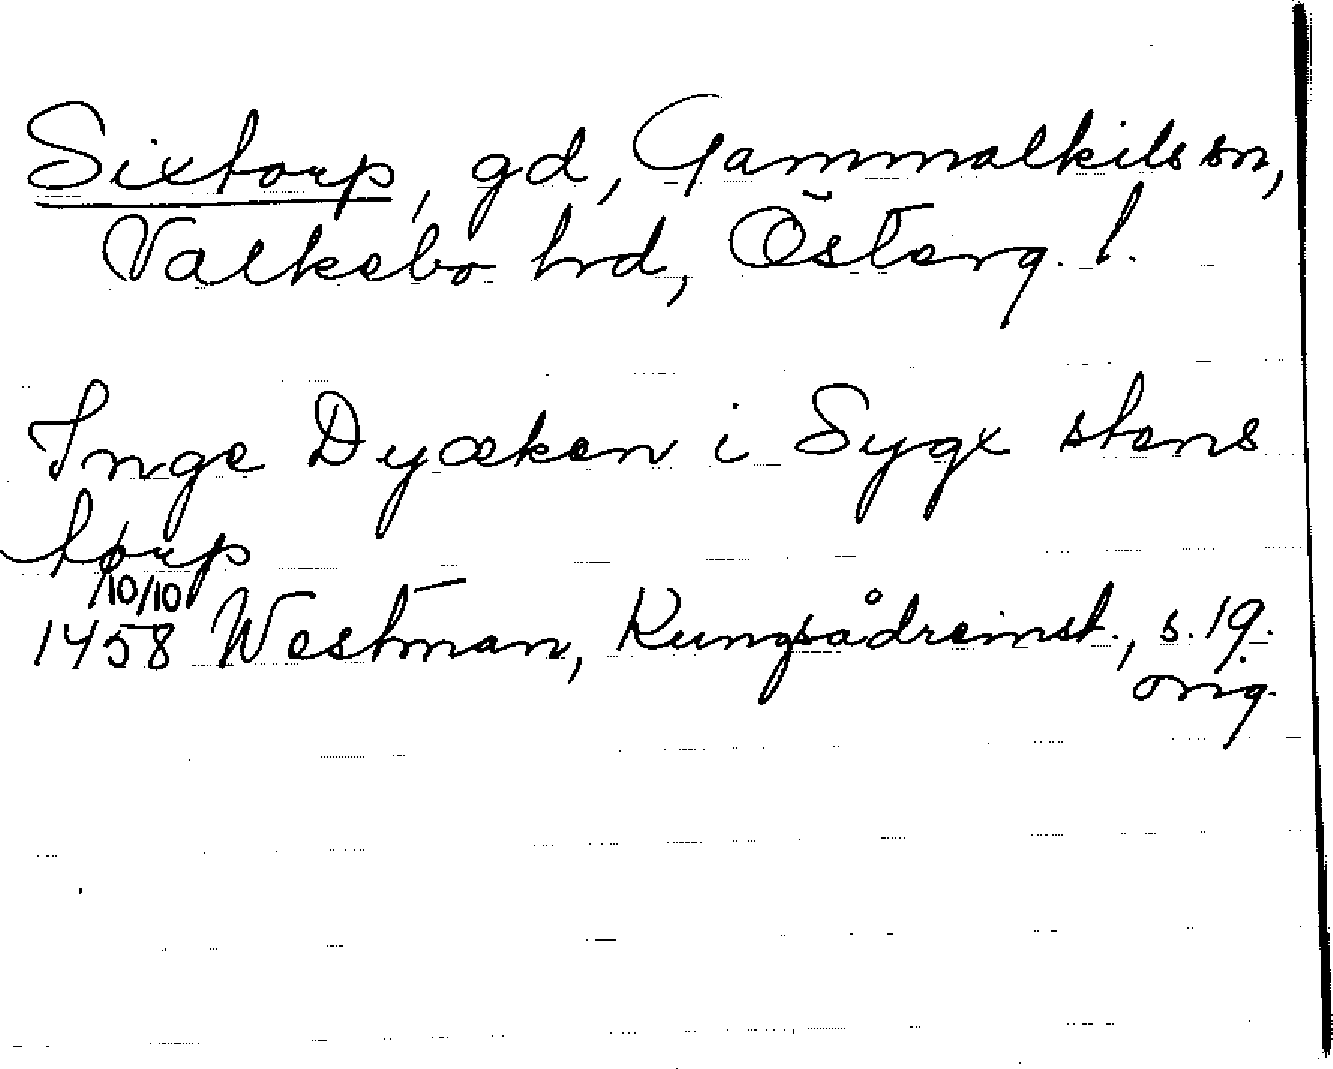 Sixtorp, gd, Gammalkils sn,
Valkebo hrd, Österg. l.
Inge Dyæken i Sygx stens
torp
10/10
1458 Westman, Kungsådreinst., s. 19.
orig.